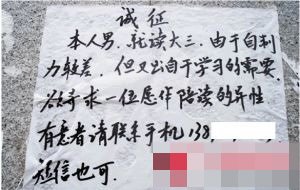 诚征
本人男.就读大三.由于自制
力较差,但又出自于学习的需要.
欲寻求一位愿作陪读的异性
有意者请联系手机138
短信也可.